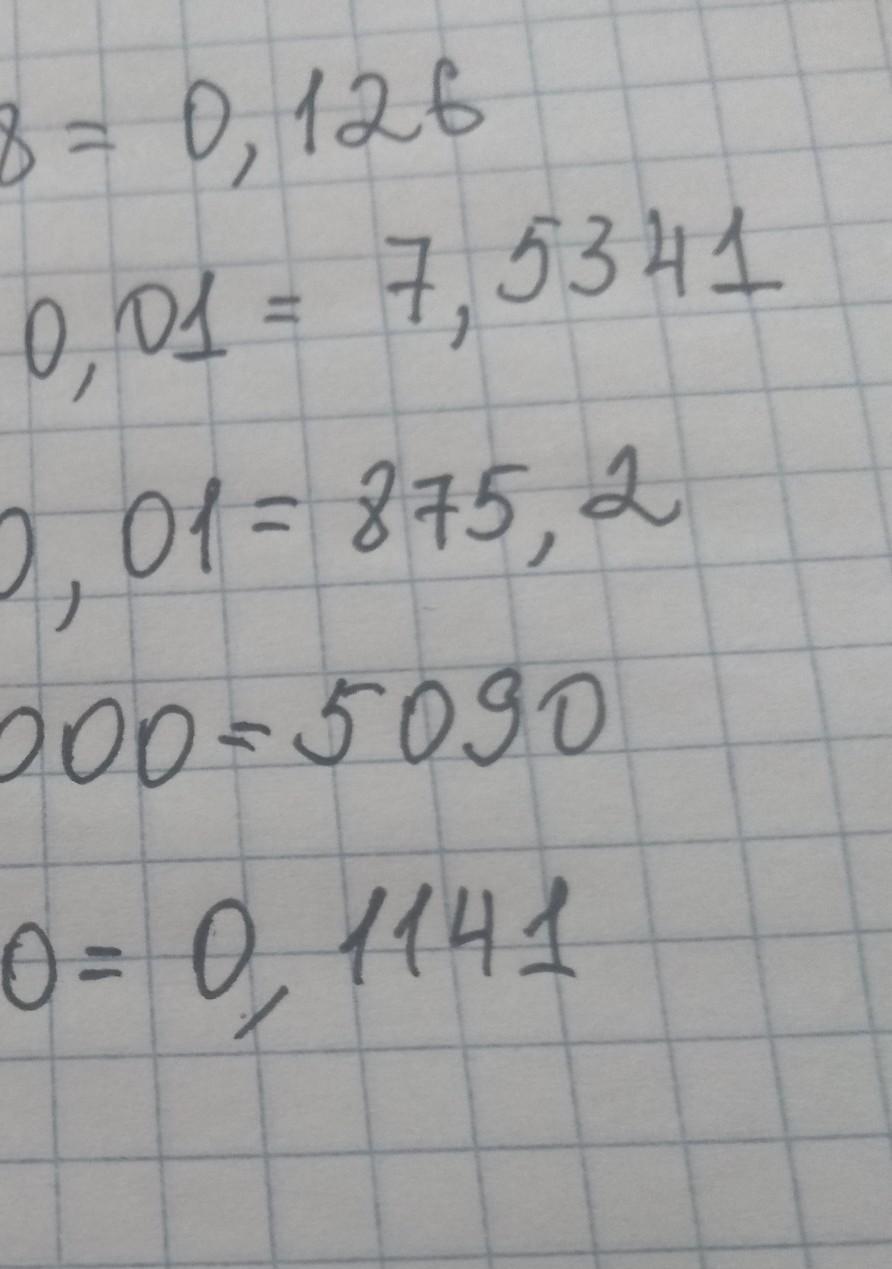 8 = 0,126
0,01 = 7,5341
0,01 = 875,2
000 = 5090
0 = 0,1141